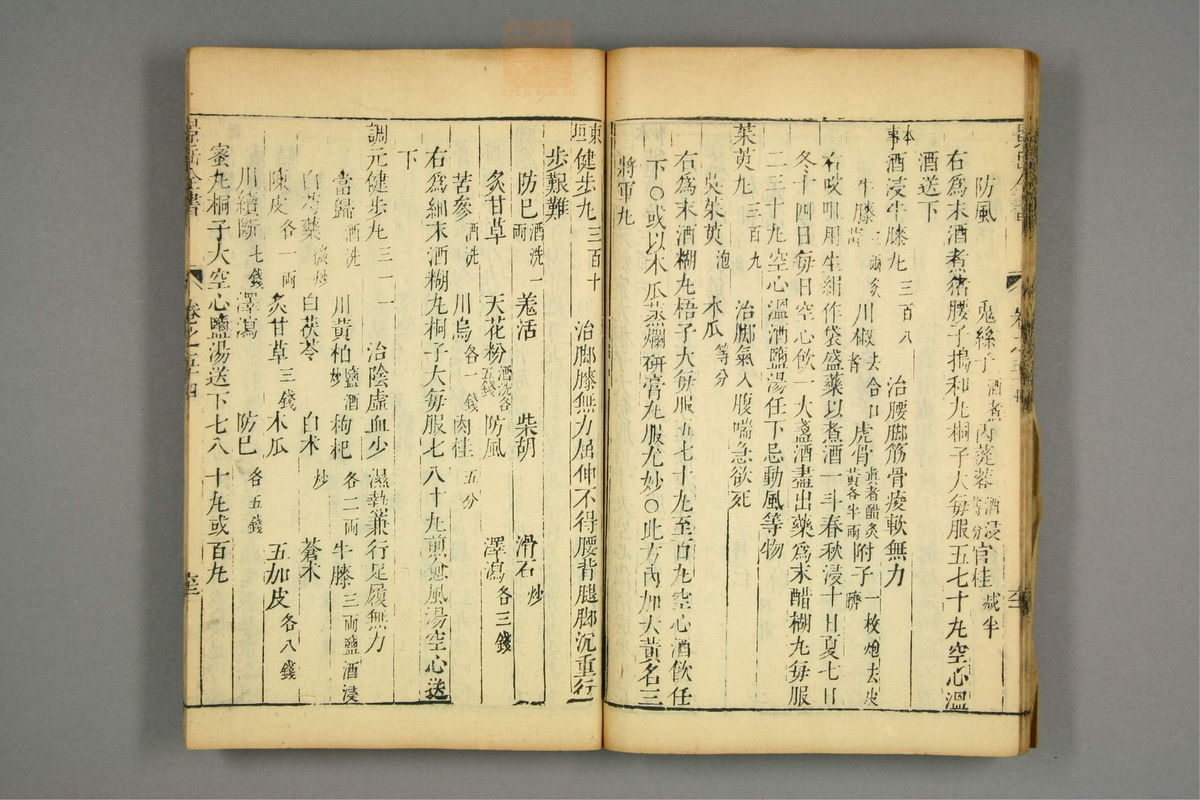 防風 兎絲子酒煮 肉蓯蓉酒浸等分 官桂減半
右爲末酒煮猪腰子搗和丸桐子大每服五七十丸空心溫
酒送下
本事酒浸牛膝丸三百八 治腰脚筋骨痠軟無力
牛膝三兩炙黃 川椒去合口者 虎骨眞者醋炙黃各半兩 附子一枚炮去皮臍
右㕮咀用生絹作袋盛藥以煮酒一斗春秋浸十日夏七日
冬十四日每日空心飲一大盞酒盡出藥爲末醋糊丸每服
二三十丸空心溫酒鹽湯任下忌動風等物
茱萸丸三百九 治脚氣入腹喘急欲死
吳茱萸泡 木瓜等分
右爲末酒糊丸梧子大每服五七十丸至百丸空心酒飲任
下○或以木瓜蒸爛研膏丸服尤妙○此方內加大黃名三
將軍丸
東垣健步丸三百十 治脚膝無力屈伸不得腰背腿脚沉重行
步艱難
防巳酒洗一兩 羗活 柴胡 滑石炒
炙甘草 天花粉酒洗各五錢 防風 澤瀉各三錢
苦參酒洗 川烏各一錢 肉桂五分
右爲細末酒糊丸桐子大每服七八十丸煎愈風湯空心送
下
調元健步丸三一一 治陰虛血少濕熱兼行足履無力
當歸酒洗 川黃柏鹽酒炒 枸杞各二兩 牛膝三兩鹽酒浸
白芍藥微炒 白茯苓 白术炒 蒼术
陳皮各一兩 炙甘草三錢 木瓜 五加皮各八錢
川續斷七錢 澤瀉 防巳各五錢
蜜丸桐子大空心鹽湯送下七八十丸或百丸
景岳全書 卷之五十四